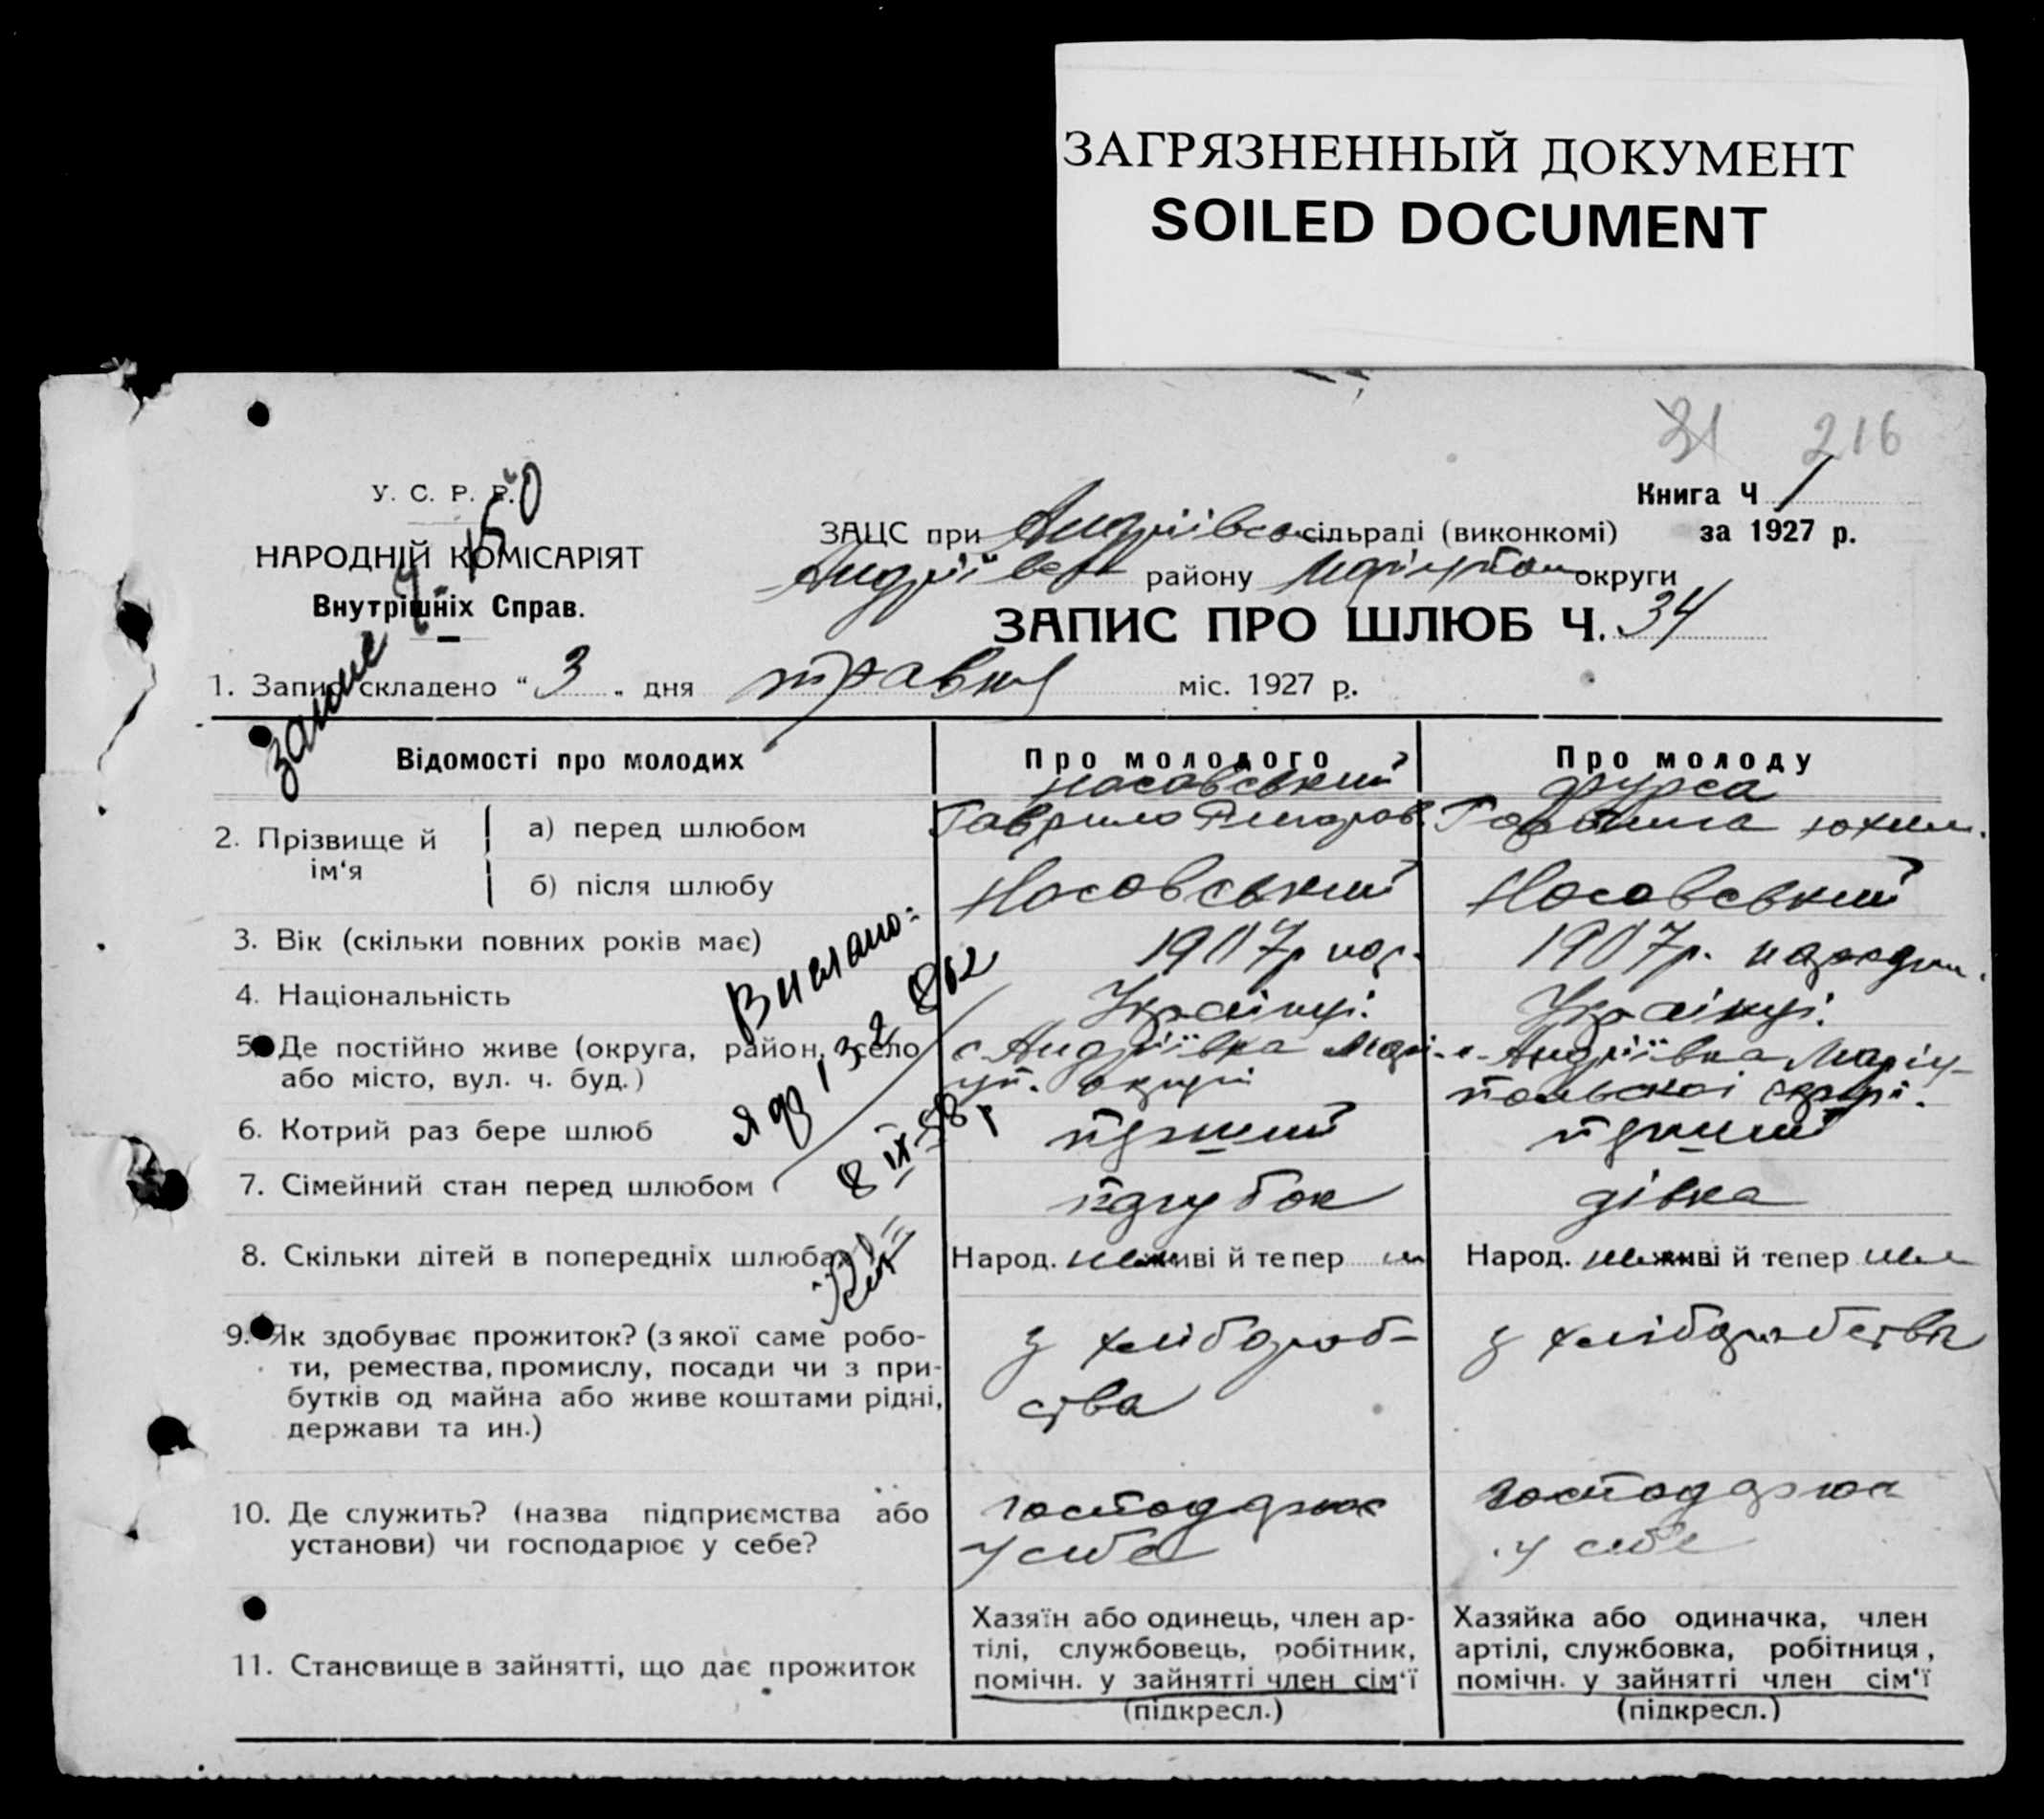 ЗАГРЯЗНЕННЫЙ ДОКУМЕНТ
SOILED DOCUMENT
31 216
У. С. Р. Р.
НАРОДНІЙ КОМІСАРІЯТ
Внутрішніх Справ.
Книга Ч 1
за 1927 р.
ЗАЦС при Андріївсь сільраді (виконкомі)
Андріївсь району Маріупол округи
ЗАПИС ПРО ШЛЮБ Ч. 34
1. Запис складено “ 3 „ дня травня міс. 1927 р.
Відомості про молодих
Про молодого
Про молоду
2. Прізвище й ім‘я
а) перед шлюбом
Носовський
Гаврило
Фурса
Юхим.
б) після шлюбу
Носовський
Носовський
3. Вік (скільки повних років має)
1907р нар.
1907р. народж.
4. Національність
Українці.
Українці.
5. Де постійно живе (округа, район, село
або місто, вул. ч. буд.)
с. Андріївка Марі-
уп. округи
с. Андріївка Маріу-
польскоі округи.
6. Котрий раз бере шлюб
перший
перший
7. Сімейний стан перед шлюбом
парубок
дівка
8. Скільки дітей в попередніх шлюбах
Народ. живі й тепер
Народ. живі й тепер
9. Як здобуває прожиток? (з якої саме робо-
ти, ремества, промислу, посади чи з при-
бутків од майна або живе коштами рідні,
держави та ин.)
з хлібороб-
ства
з хліборобства
10. Де служить? (назва підприємства або
установи) чи господарює у себе?
господарює
у себе
господарює
у себе
11. Становище в зайнятті, що дає прожиток
Хазяїн або одинець, член ар-
тілі, службовець, робітник,
помічн. у зайнятті член сім‘ї
(підкресл.)
Хазяйка або одиначка, член
артілі, службовка, робітниця,
помічн. у зайнятті член сім‘ї
(підкресл.)